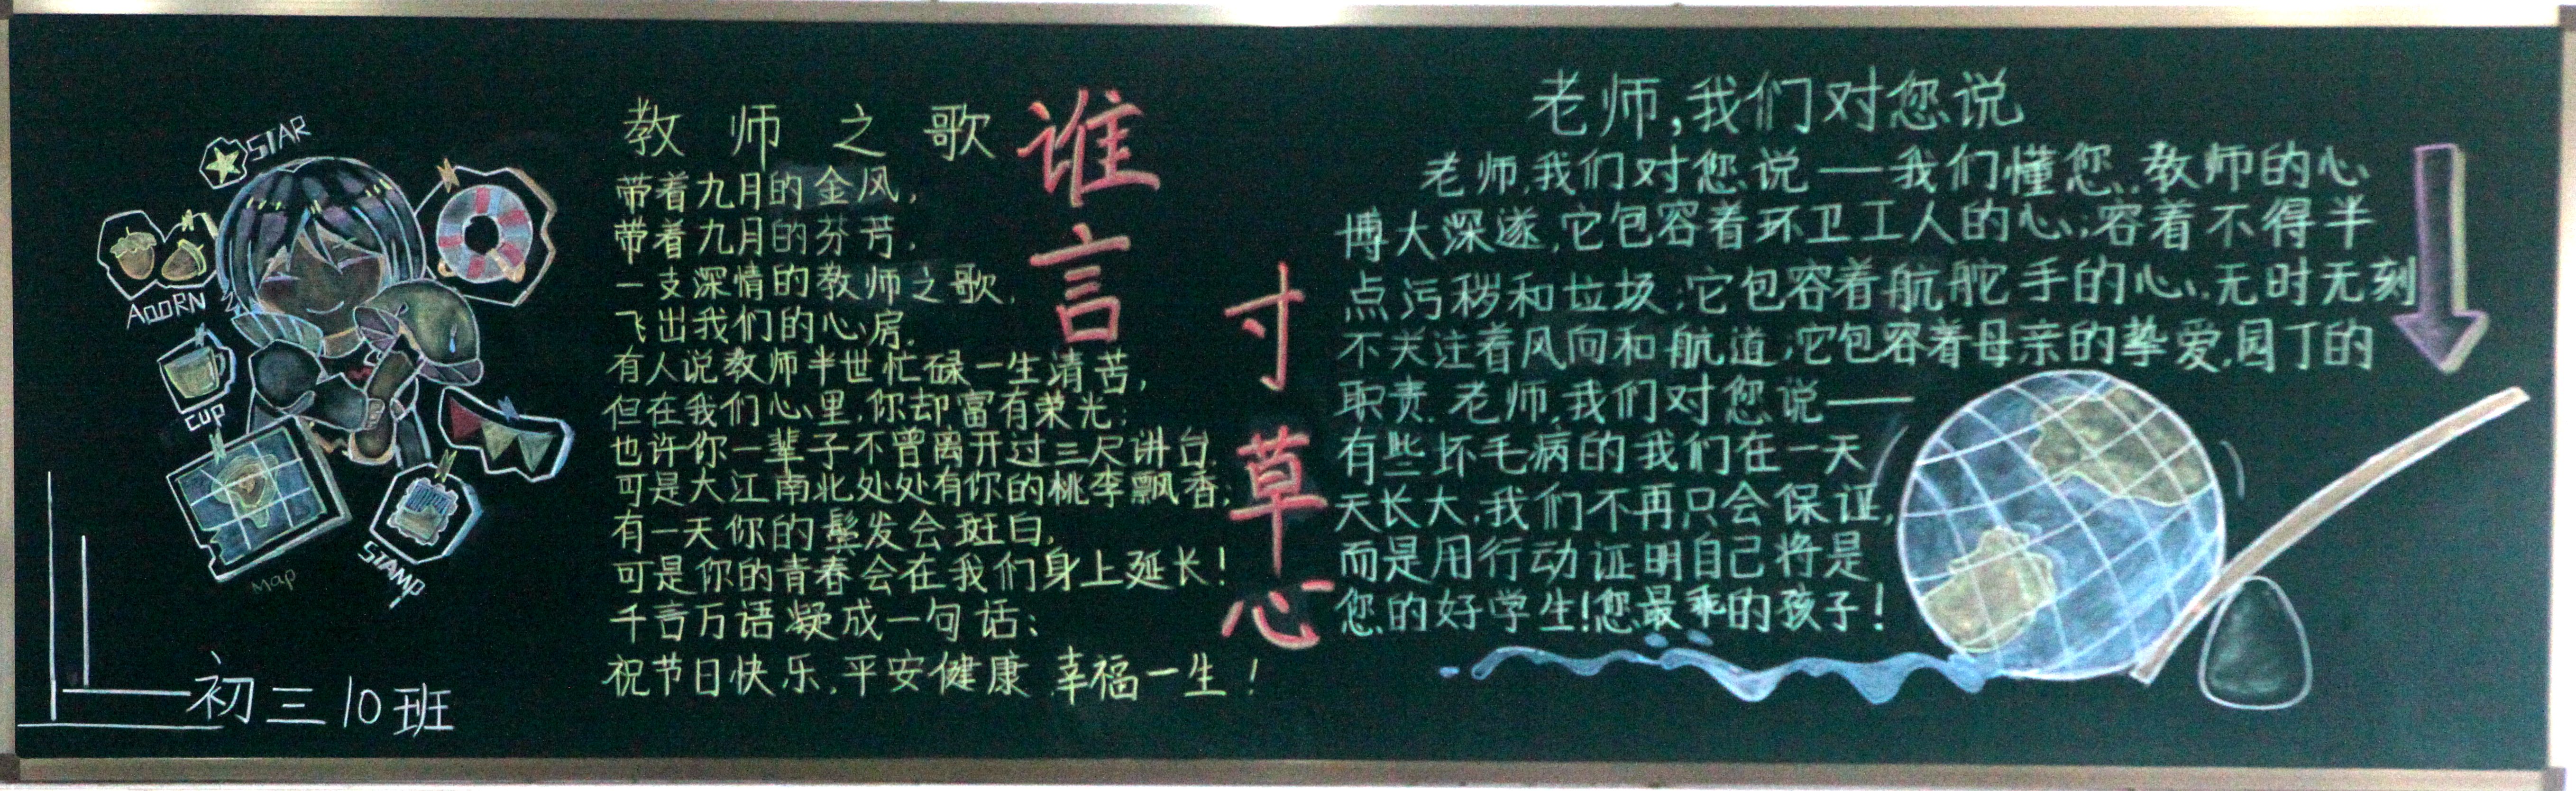 STAR
AcoRN
cup
Map
STAMP
初三10班
教师之歌
带着九月的金风,
带着九月的芬芳,
一支深情的教师之歌,
飞出我们的心房.
有人说教师半世忙碌一生清苦,
但在我们心里,你却富有荣光;
也许你一辈子不曾离开过三尺讲台
可是大江南北处处有你的桃李飘香;
有一天你的鬓发会斑白,
可是你的青春会在我们身上延长!
千言万语凝成一句话:
祝节日快乐,平安健康 幸福一生!
谁言
寸草心
老师,我们对您说
老师,我们对您说——我们懂您.教师的心
博大深邃,它包容着环卫工人的心;容着不得半
点污秽和垃圾;它包容着航舵手的心,无时无刻
不关注着风向和航道;它包容着母亲的挚爱,园丁的
职责.老师,我们对您说——
有些坏毛病的我们在一天
天长大,我们不再只会保证,
而是用行动证明自己将是
您的好学生!您最乖的孩子!